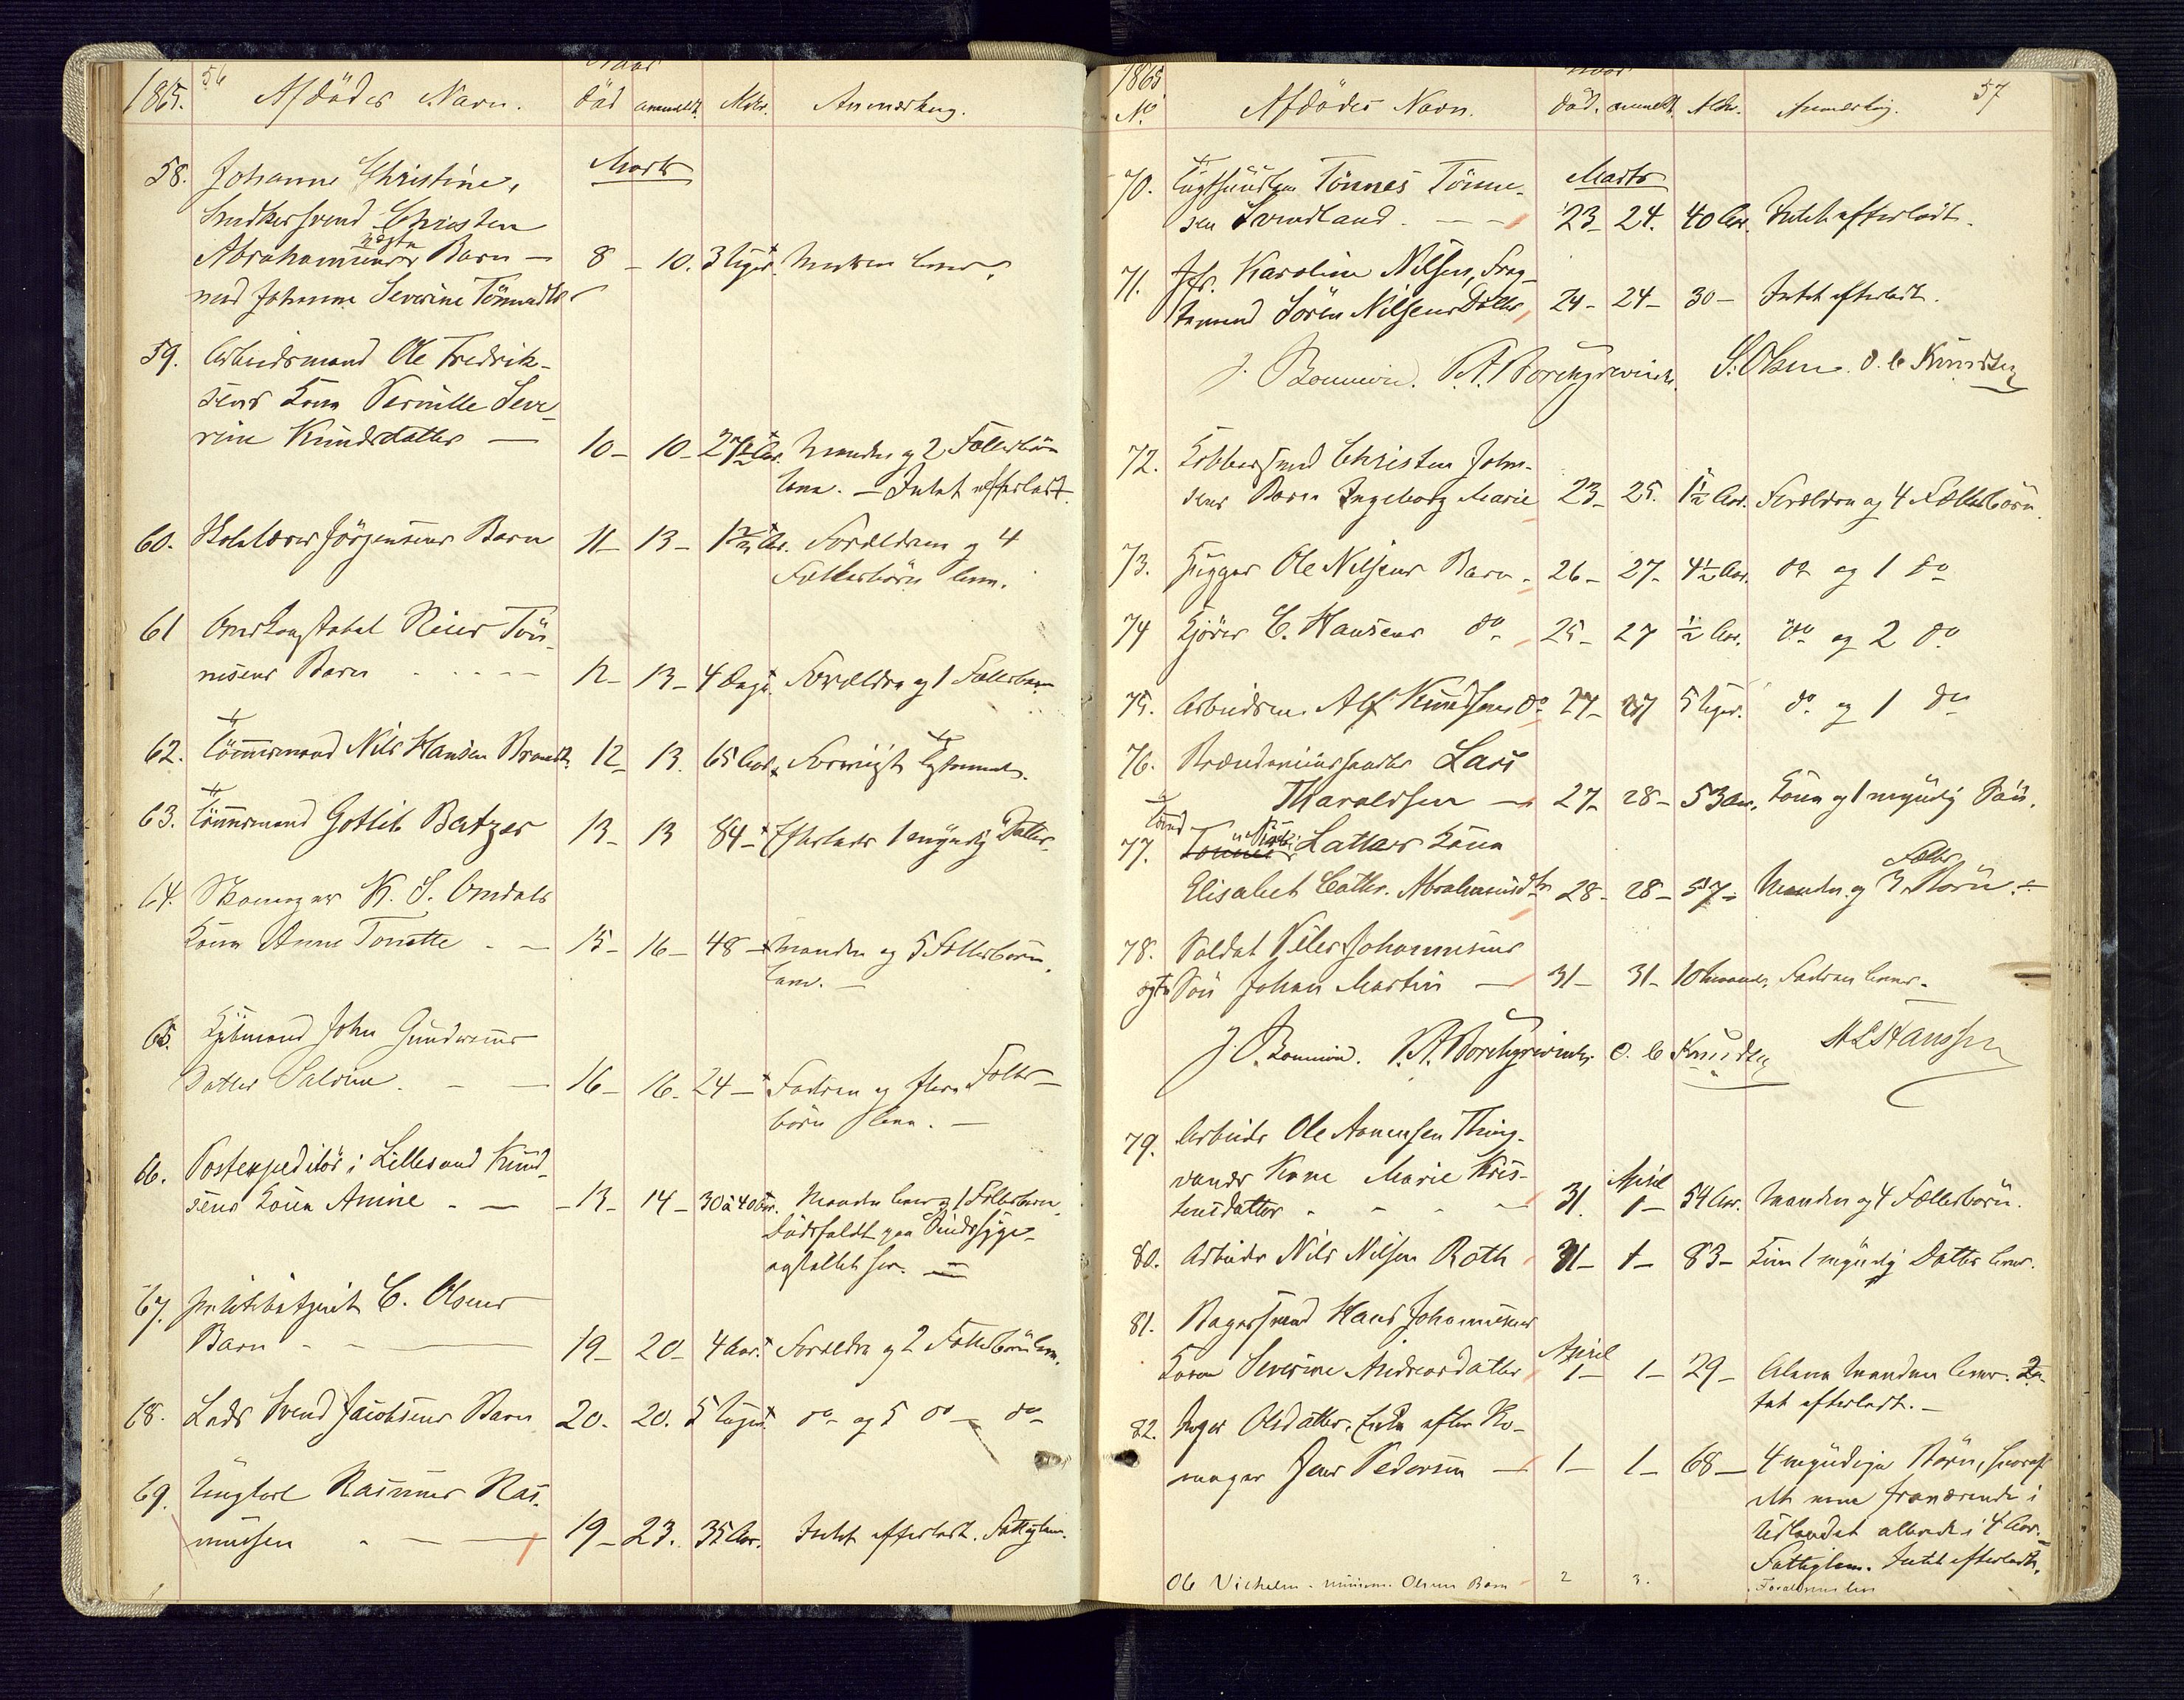 1865. 56 Afdødes Navn. død anmeldt. Alder. Anmærkning.
58. Johanne Christine, Marts
Snedkersvend Christen
Abrahamsens uægte Barn — 8 – 10. 3 Uger. Moderen lever.
med Johanne Severine Tönnesdtr
59. Arbeidsmand Ole Fredrik-
sens Kone Pernille Seve-
rine Knudsdatter — 10 – 10 – 27½ Aar. Manden og 2 Fællesbörn
leve. — Intet efterladt.
60. Skolelærer Jörgensens Barn 11 – 13 – Aar. Forældrene og 4
Fællesbörn leve.
61 Overkonstabel Reier Tön-
nesens Barn 12 – 13 – 4 Dage. Forældre og 1 Fællesbarn
62. Tömmermand Nils Hansen Brandt. 12 – 13. 65 Aar.
63. Tömmermand Gotlib Batzer 13 – 13 84 – Efterlader 1 myndig Datter.
64. Skomager K. S. Omdals
Kone Anne Tonette – – 15 – 16 – 48 – Manden og 5 Fællesbörn
leve. —
65. John Gundersens
Datter Salvine. – – 16 – 16. 24 – Faderen og flere Fælles-
börn leve. —
66. Postexpeditör i Lillesand Knud-
sens Kone Amine – — – 13 – 14 – 30 à 40 Aar. Manden lever og 1 Fællesbarn.
Dödsfaldt paa Sindssyge-
asylet her. —
67. Politibetjent C. Olsens
Barn – – — 19 – 20 – 4 Aar. Forældre og 2 Fællesbörn leve.
68. Lods Svend Jacobsens Barn 20. 20. 5 Uger. do og 5 do – do
69. Ungkarl Rasmus Ras-
mussen – — — 19 – 23. 35 Aar. Intet efterladt. Fattiglem.
1865 No Afdødes Navn. død. anmeldt. Alder. Anmerkning. 57
70. Tugthuuslem Tönnes Tönne- Marts
sen Svendland. – – 23 – 24. 40 Aar. Intet efterladt.
71. Jfr. Karoline Nilsen, Frag-
temand Sören Nilsens Datter, 24 – 24 – 30 – Intet efterladt.
J. Bommen. P. A. Borchgrevinck. S. Olsen. O. C. Knudsen
72. Kobbersmed Christen John-
sens Barn Ingeborg Marie 23 – 25. 1½ Aar. Forældre og 4 Fællesbörn.
73. Hugger Ole Nilsens Barn – 26 – 27 – 4½ Aar. do og 1 do
74 Kjörer C. Hansens do – 25 – 27 ½ Aar. do og 2 do
75. Arbeidsm. Alf Knudsens do 27 – 27 5 Uger. do og 1 do
76. Brændeviinshandler Lars
Tharaldsen — 27 – 28 – 53 Aar. Kone og 1 myndig Sön.
77. Lattaes Kone
Elisabet Cathr. Abrahamsdtr 28 – 28 – 57 – Manden og 3 Fælles Börn. —
78. Soldat Peter Johannesens
ægte Sön Johan Martin — 31 – 31 – 10 Maaneder. Faderen lever. —
J. Bommen. P. A. Borchgrevinck. O. C. Knudsen H L Hanssen
79. Arbeider Ole Aanensen Ting-
vands Kone Marie Kris- April
tensdatter – – – – 31. 1 – 54 Aar. Manden og 4 Fællesbörn.
80. Arbeider Nils Nilsen Roth 31 – 1 – 83 – Kun 1 myndig Datter lever.
81. Bagersvend Hans Johannesens
Kone Severine Andreasdatter April 1 – 1 – 29 – Alene Manden lever. In-
tet efterladt. —
82. Inger Olsdatter, Enke efter Ko-
mager Jens Pedersen — 1 – 1 – 68 — 4 myndige Börn, hvoraf
den ene fraværende i
Udlandet allerede i 4 Aar. =
Fattiglem. Intet efterladt.
Ole Vilhelm Olsens Barn 2 3. Forældrene lever